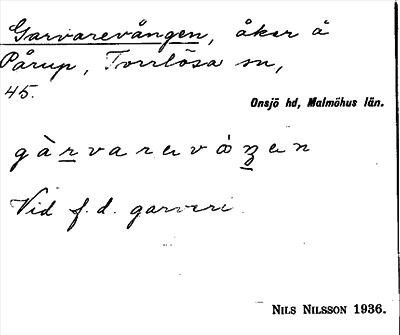 Garvarevången, åker å
Pårup, Torrlösa sn,
45.
Onsjö hd, Malmöhus län.
gàrvarevåŋen
Vid f.d. garveri
Nils Nilsson 1936.